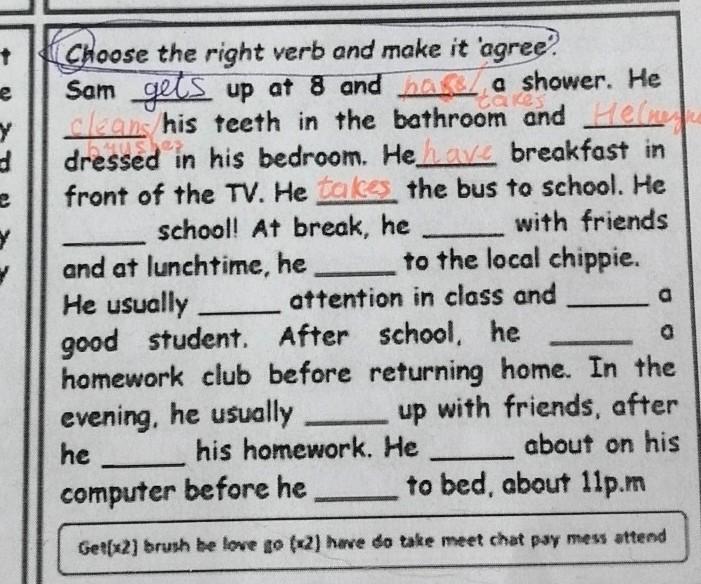 Choose the right verb and make it 'agree'.
Sam gets up at 8 and has/takes a shower. He
cleans/brushes his teeth in the bathroom and
dressed in his bedroom. He have breakfast in
front of the TV. He takes the bus to school. He
______ school! At break, he ______ with friends
and at lunchtime, he ______ to the local chippie.
He usually ______ attention in class and ______ a
good student. After school, he ______ a
homework club before returning home. In the
evening, he usually ______ up with friends, after
he ______ his homework. He ______ about on his
computer before he ______ to bed, about 11p.m
Get(x2) brush be love go (x2) have do take meet chat pay mess attend